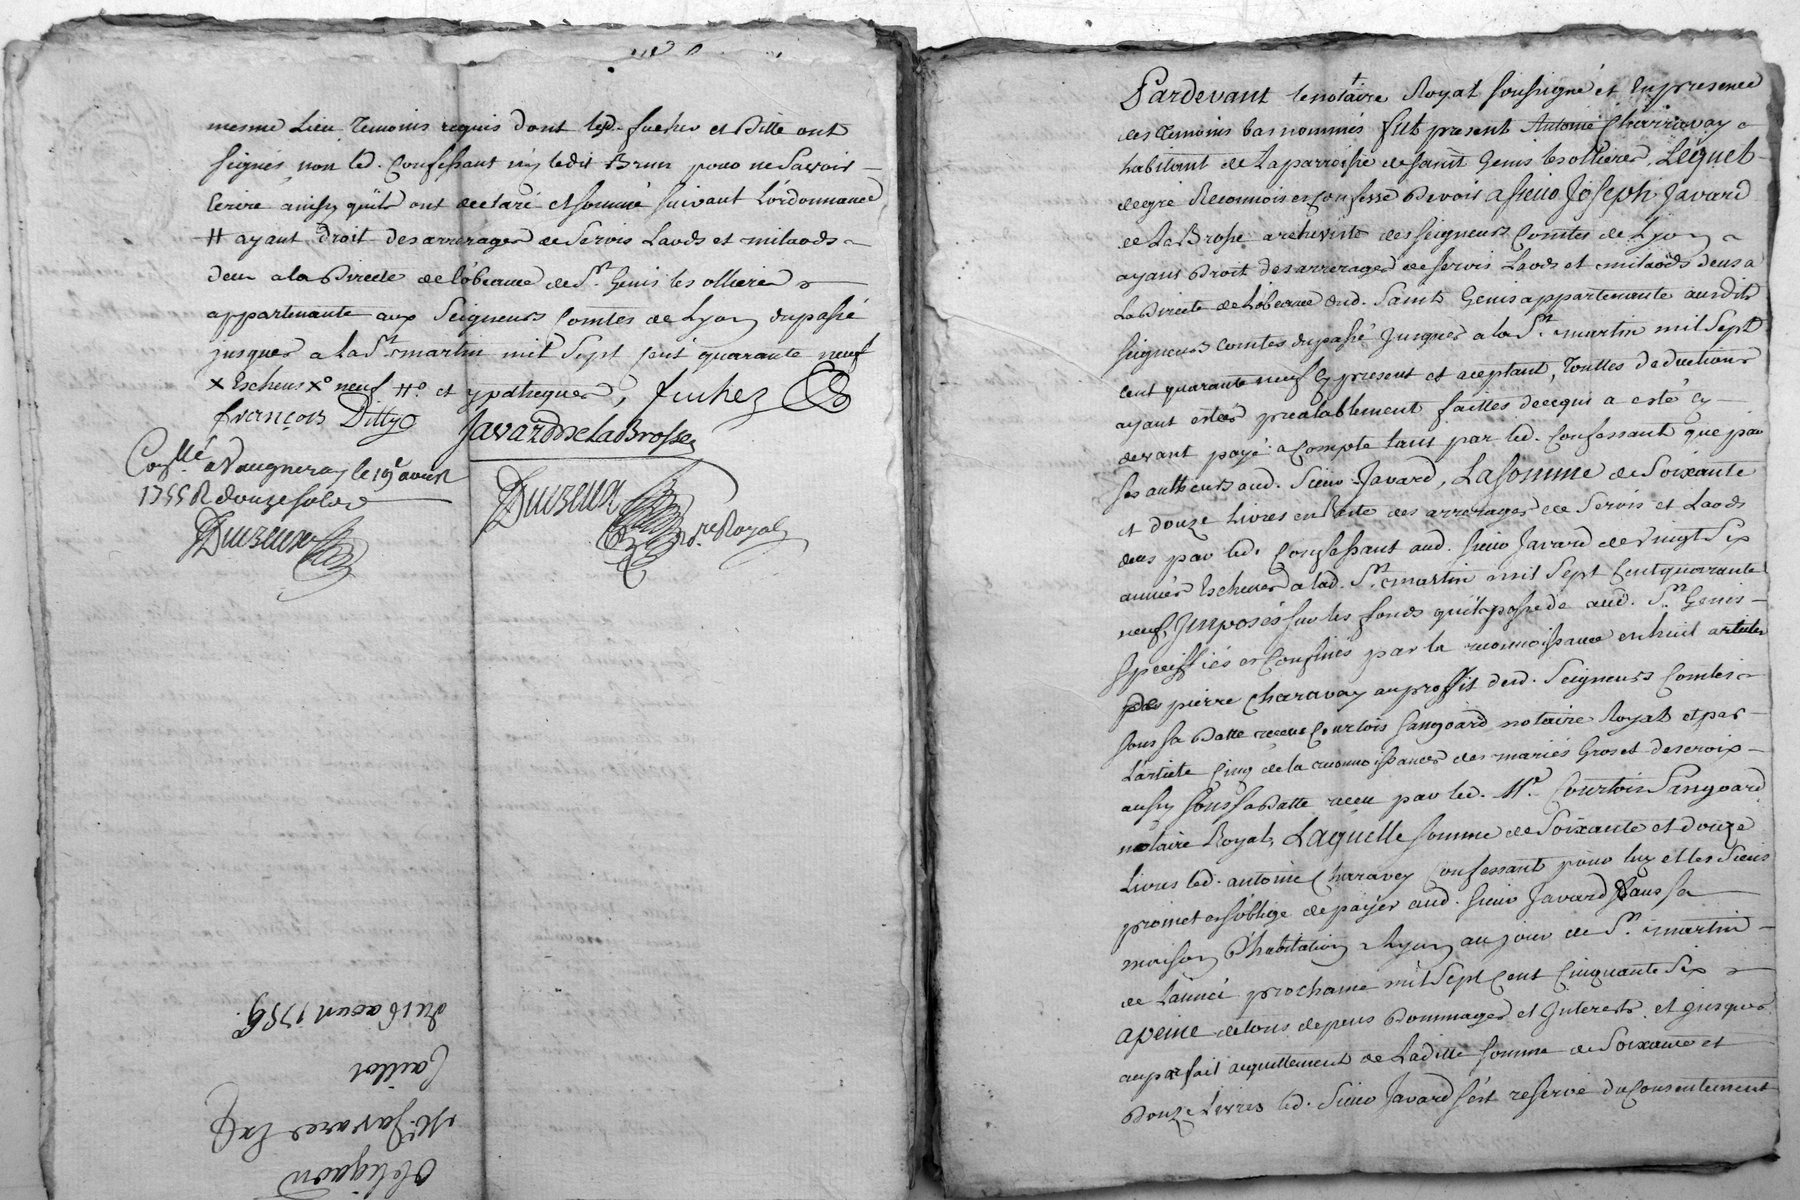 mesme Lieu temoins requis dont lesd. fuchez et Ditte ont
signés, non led. Confessant ny ledit Brun pour ne Savoir
Ecrire ainsy quils ont declaré et sommé suivant L'ordonnance
# ayant droit des arrerages de Servis Laods et milaods
deus a la Directe de l'obeance de St. Genis les ollieres
appartenante aux Seigneurs Comtes de Lyon du passé
jusques a la St. martin mil Sept Cent quarante neuf
x Escheus x° neuf #° et ypotheques, fuchez
françois Dittgo
Javard De la Brosse
Conllé a Vaugneray le 19e. avril
1755 R douze sols
Duizeux
Duizeux
nore. Royal
Pardevant le notaire Royal soussigné et En presence
des temoins bas nommés fut present Antoine Charravay
habitant de La parroisse de saint Genis les ollieres, Lequel
de gré Reconnois et Confesse Devoir a sieur Joseph Javard
de La Brosse archiviste des seigneurs Comtes de Lyon
ayant Droit des arrerages de servis Laods et milaods deus a
La Directe de L'obeance dud. Saint Genis appartenante ausdits
seigneurs comtes du passé jusques a la St. martin mil Sept
cent quarante neuf Cy present et aceptant, touttes deductions
ayant estées prealablement faittes de ce qui a esté cy
devant payé a compte tant par led. Confessant que par
ses autheurs aud. Sieur Javard, La somme de Soixante
et douze Livres en Reste des arrerages de Servis et Laods
deus par led. Confessant aud. sieur Javard de vingt Six
années Escheues a lad. St. martin mil Sept Cent quarante
neuf, Imposés sur les fonds qu'il possede aud. St. Genis
speciffiés et Confinés par la reconnoissance en huit articles
de pierre Charavay au proffit desd. Seigneurs Comtes
sous sa Datte receue Courtois Sangoard notaire Royal et par
L'article Cinq de la reconnoissance des mariés Gros et descroix
aussy sous sa Datte receu par led. Me. Courtois Sangoard
notaire Royal, Laquelle somme de Soixante et douze
Livres led. antoine Charavey Confessant pour luy et les Siens
promet et s'oblige de payer aud. sieur Javard Dans sa
maison D'habitation a Lyon au jour de St. martin
de L'année prochaine mil Sept Cent Cinquante Six
a peine de tous depens Dommages et Interests, et jusques
au parfait aquittement de Ladite somme de Soixante et
Douze Livres led. Sieur Javard s'est reservé du Consentement
Obligaon
Mr. Javard
Du 16 aoust